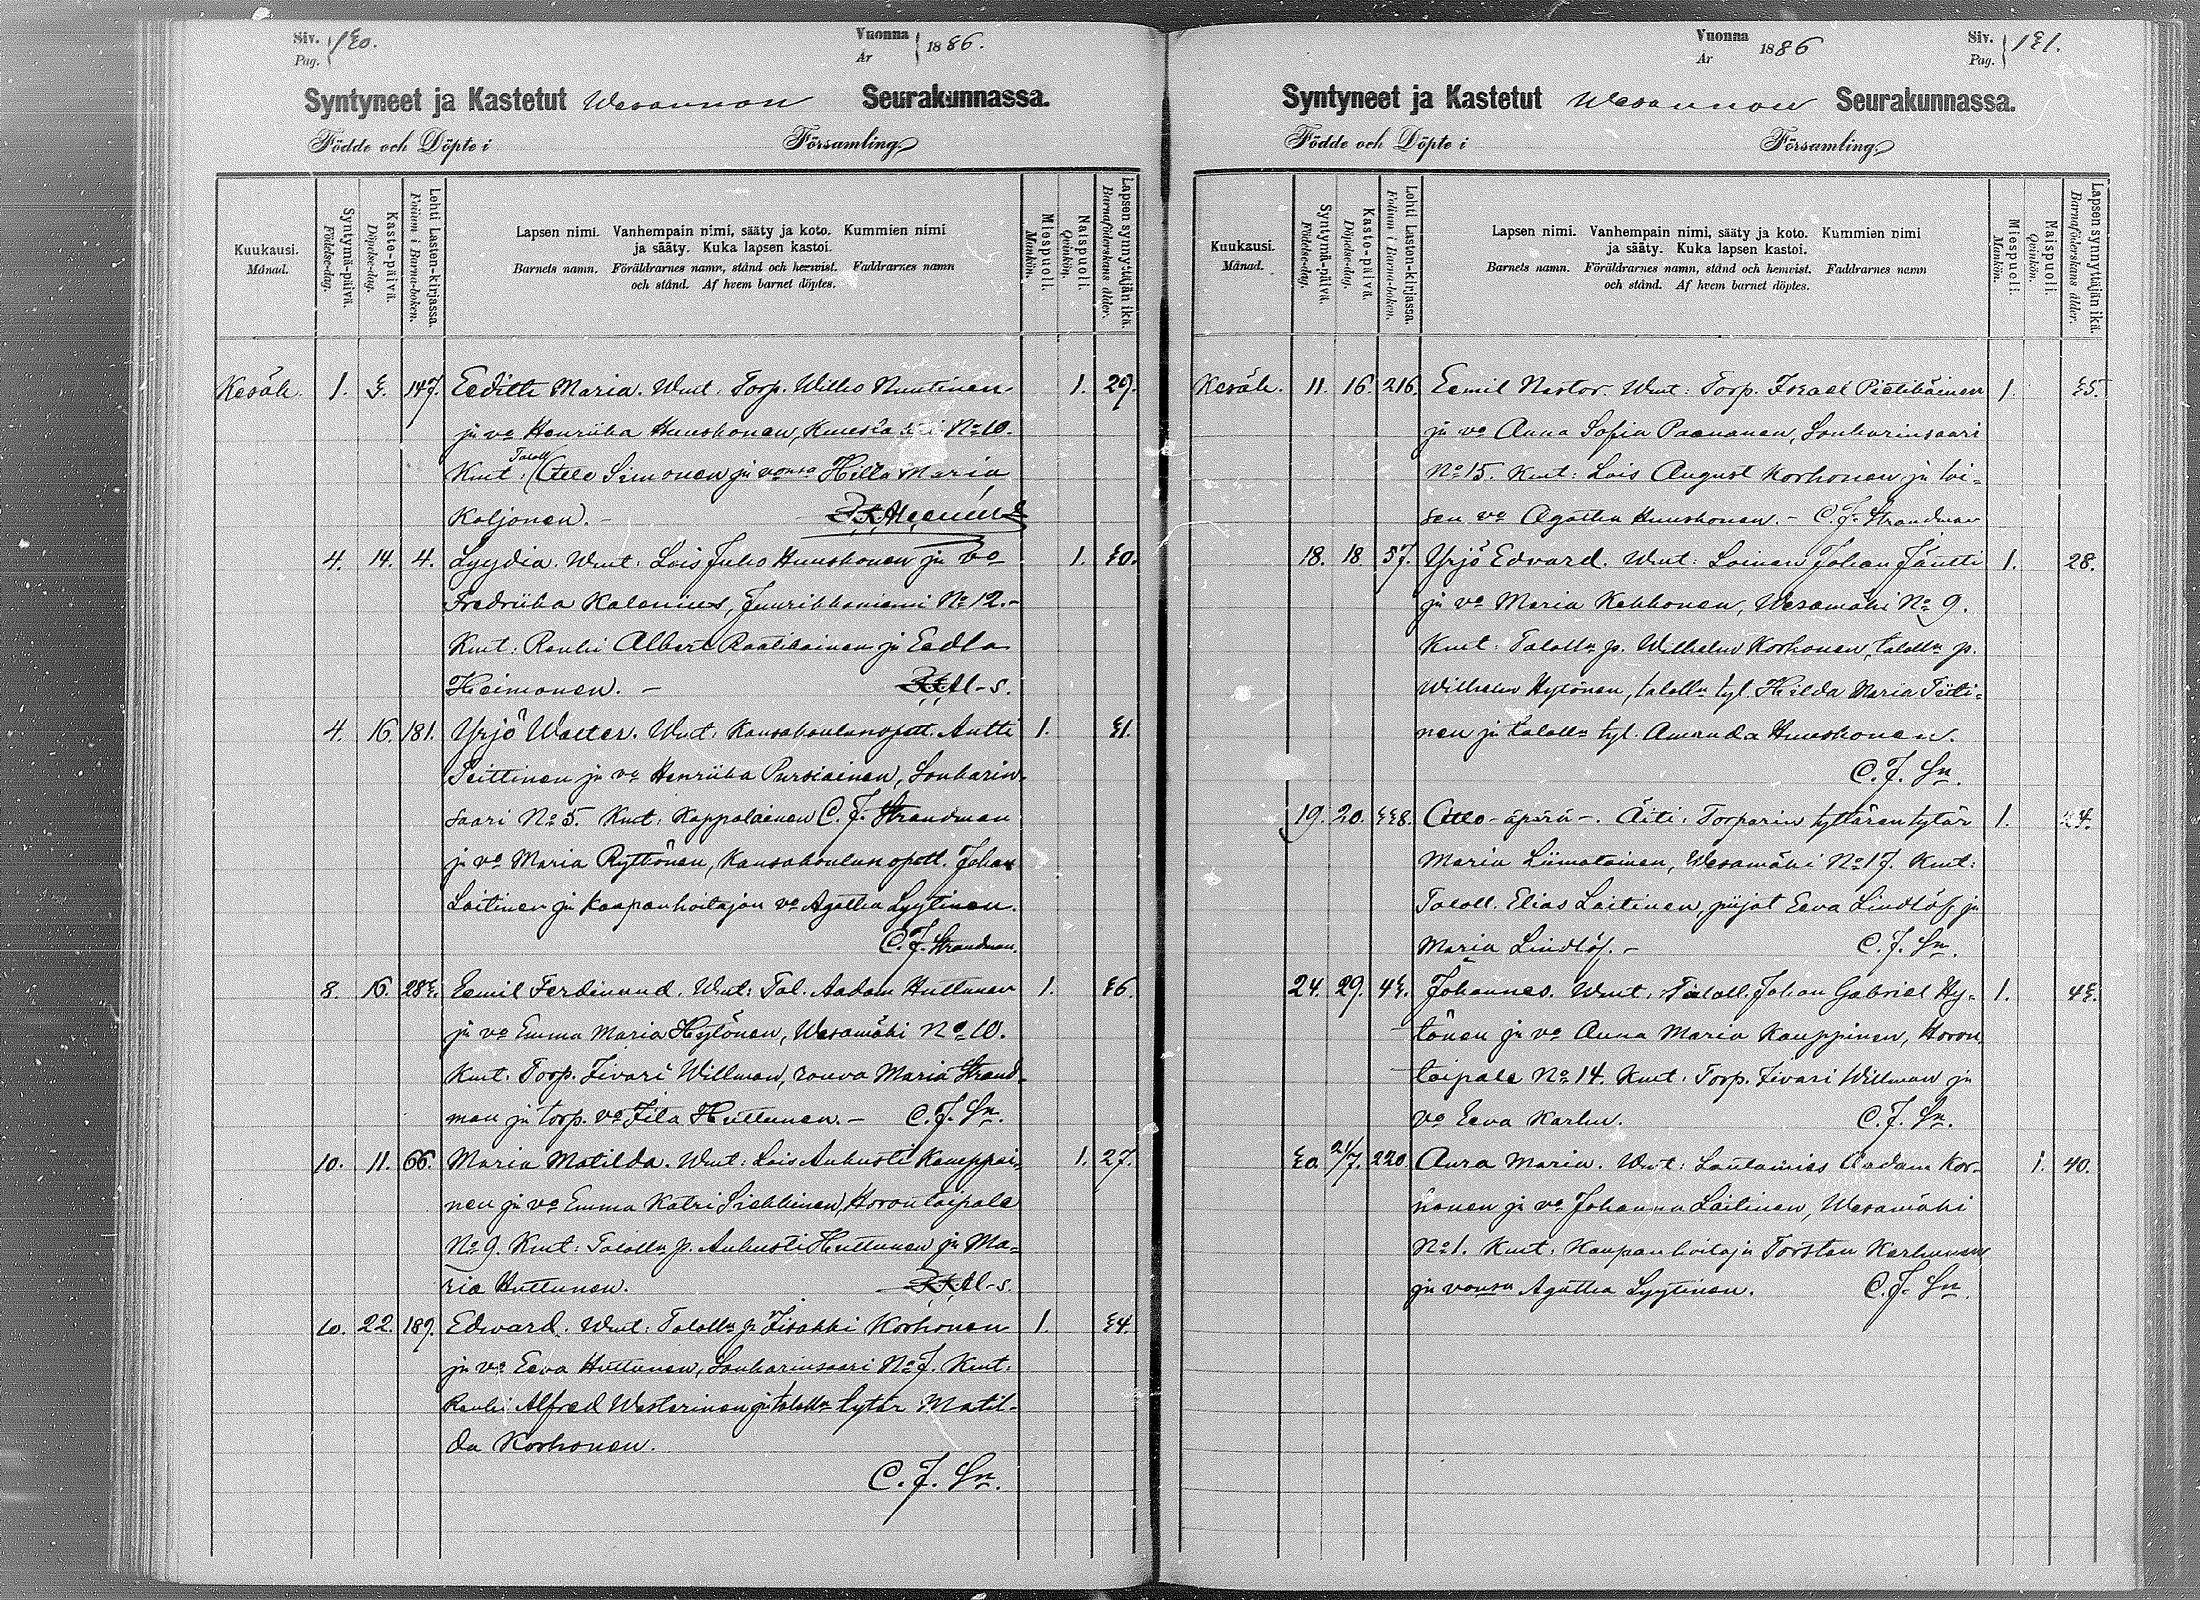 Siv. 130.
Pag.
Vuonna 1886.
År
Syntyneet ja Kastetut Wesannon Seurakunnassa.
Födde och Döpte i Församling.
Kuukausi.
Månad.
Syntymä-päivä.
Födelse-dag.
Kaste-päivä.
Döpelse-dag.
Lehti Lasten-kirjassa.
Folium i Barna-boken.
Lapsen nimi. Vanhempain nimi, sääty ja koto. Kummien nimi
ja sääty. Kuka lapsen kastoi.
Barnets namn. Föräldrarnes namn, stånd och hemvist. Faddrarnes namn
och stånd. Af hvem barnet döptes.
Miespuoli.
Mankön.
Naispuoli.
Qvinkön.
Lapsen synnyttäjän ikä.
Barnaföderskans ålder.
Kesäk. 1. 3. 147. Eedith Maria. Wmt. Torp. Wilho Nuutinen 1. 29.
ja vo Henriika Huuskonen, No 10.
Kmt: Taloll Otto Simonen ja vonsa Hilla Maria
Koljonen. -
4. 14. 4. Lyydia. Wmt: Lois Juho Huuskonen ja vo 1. 30.
Fredriika Kalenius, Juurikkaniemi No 12. -
Kmt: Renki Albert Raatikainen ja Eedla
Heimonen. -
4. 16. 181. Yrjö Walter. Wmt: Kansakoulunopett. Antti 1. 31.
Peittinen ja vo Henriika Pursiainen, Sonkarin-
saari No 5. Kmt: Kappalainen C. F. Strandman
ja vo Maria Rytkönen, Kansakoulun opett. Johan
Laitinen ja Kaupanhoitajan vo Agatha Lyytinen.
C. F. Strandman.
8. 16. 283. Eemil Ferdinand. Wmt: Tal. Aadam Huttunen 1. 36.
ja vo Emma Maria Hytönen, Wesamäki No 10.
Kmt: Torp. Iivari Willman, rouva Maria Strand-
man ja torp. vo Iita Huttunen. - C. F. Sn.
10. 11. 66. Maria Matilda. Wmt: Lois Auhusti Kauppi- 1. 27.
nen ja vo Emma Katri Siekkinen, Horontaipale
No 9. Kmt: Taloll p. Auhusti Huttunen ja Ma-
ria Huttunen.
10. 22. 189. Edvard. Wmt: Taloll p. Iisakki Korhonen 1. 34.
ja vo Eeva Huttunen, Sonkarinsaari No 7. Kmt:
Renki Alfred Westerinen ja taloll tytär Matil-
da Korhonen.
C. F. Sn.
Vuonna 1886
År
Siv. 131.
Pag.
Syntyneet ja Kastetut Wesannon Seurakunnassa.
Födde och Döpte i Församling.
Kuukausi.
Månad.
Syntymä-päivä.
Födelse-dag.
Kaste-päivä.
Döpelse-dag.
Lehti Lasten-kirjassa.
Folium i Barna-boken.
Lapsen nimi. Vanhempain nimi, sääty ja koto. Kummien nimi
ja sääty. Kuka lapsen kastoi.
Barnets namn. Föräldrarnes namn, stånd och hemvist. Faddrarnes namn
och stånd. Af hvem barnet döptes.
Miespuoli.
Mankön.
Naispuoli.
Qvinkön.
Lapsen synnyttäjän ikä.
Barnaföderskans ålder.
Kesäk. 11. 16. 216. Eemil Nestor. Wmt: Torp. Israel Pietikäinen 1. 35.
ja vo Anna Sofia Paananen, Sonkarinsaari
No 15. Kmt: Lois August Korhonen ja loi-
sen vo Agatha Huuskonen. - C. F. Strandman
18. 18. 57. Yrjö Edvard. Wmt: Loinen Johan Jäntti 1. 28.
ja vo Maria Kekkonen, Wesamäki No 9.
Kmt: Taloll p. Wilhelm Korhonen, taloll p.
Wilhelm Hytönen, taloll tyt. Hilda Maria Titi-
nen ja taloll tyt. Amanda Huuskonen.
C. F. Sn.
19. 20. 338. Otto - äpärä -. Äiti: Torparin tyttären tytär 1. 24.
Maria Liimatainen, Wesamäki No 17. Kmt:
Taloll. Elias Laitinen, piijat Eeva Lindlöf ja
Maria Lindlöf. - C. F. Sn.
24. 29. 43. Johannes. Wmt: Taloll. Johan Gabriel Hy- 1. 43.
tönen ja vo Anna Maria Kauppinen, Horon-
taipale No 14. Kmt: Torp. Iivari Willman ja
vo Eeva Karhu. C. F. Sn.
30. 21/7. 220 Aura Maria. Wmt: Lautamies Aadam Kor- 1. 40.
honen ja vo Johanna Laitinen, Wesamäki
No 1. Kmt: Kaupanhoitaja Torsten Karhunen
ja vonsa Agatha Lyytinen. C. F. Sn.